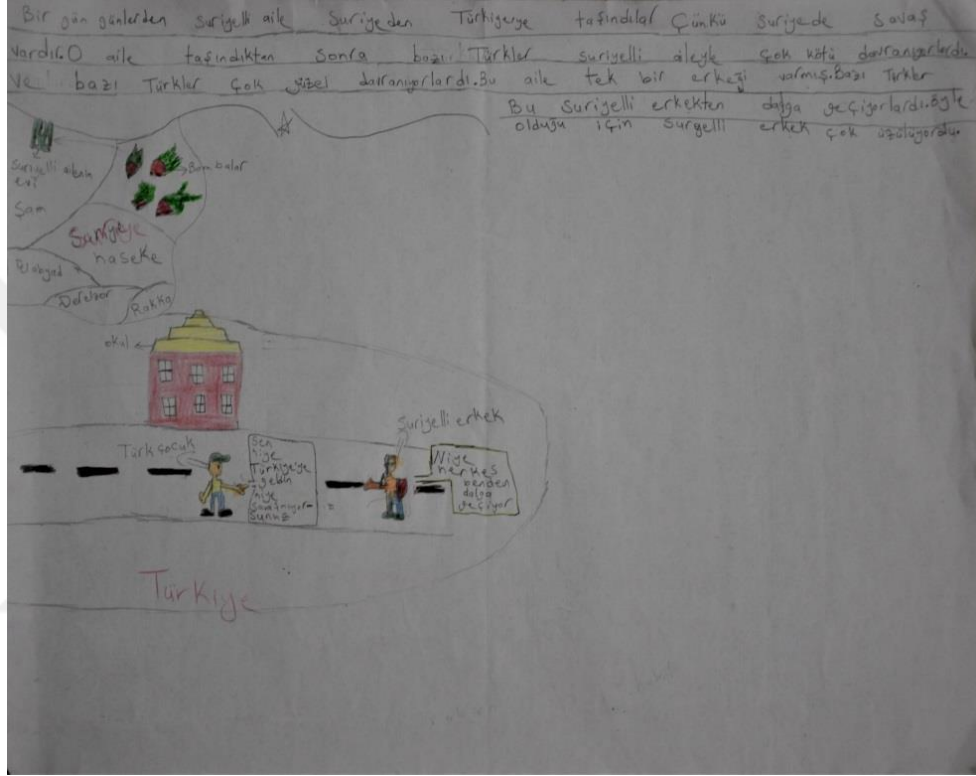 Bir gün günlerden suriyelli aile suriyeden Türkiyeye tafındılar Çünkü suriyede savaş
vardır.O aile tafındıktan sonra bazı Türkler suriyelli aileyle çok kötü davranıyorlardı.
Ve bazı Türkler çok güzel davranıyorlardı.Bu aile tek bir erkeği varmış.Bazı Türkler
Bu Suriyelli erkekten dalga geçiyorlardı.öyle
olduğu için surgelli erkek çok üzülüyordu.
Bombalar
suriyelli
evi
Şam
Suriyeye
haseke
Rakka
okul
Suriyelli erkek
Türk çocuk
Sen
niye
Türkiyeye
geldin
niye
savaşmıyor-
sunuz
Niye
herkes
benden
dalga
geçiyor
Türkiye